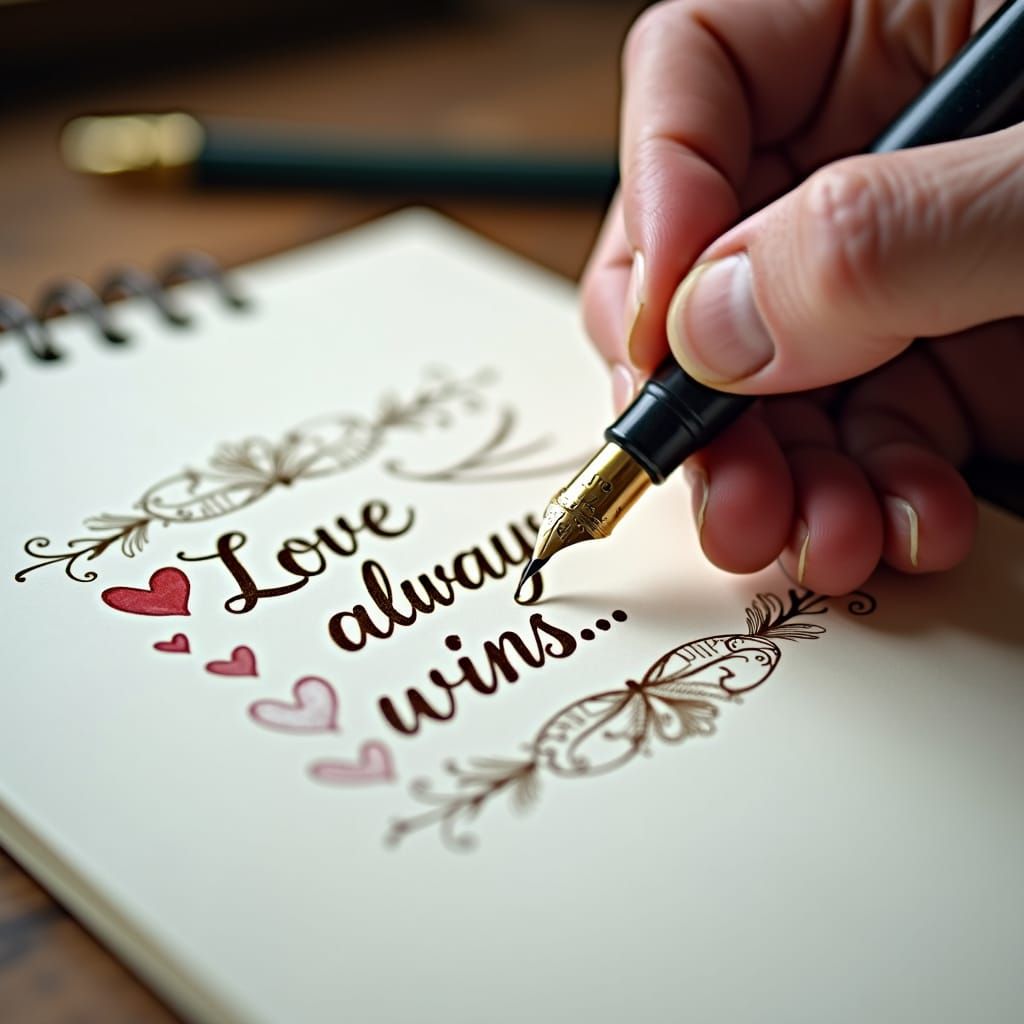 Love
alway
wins...